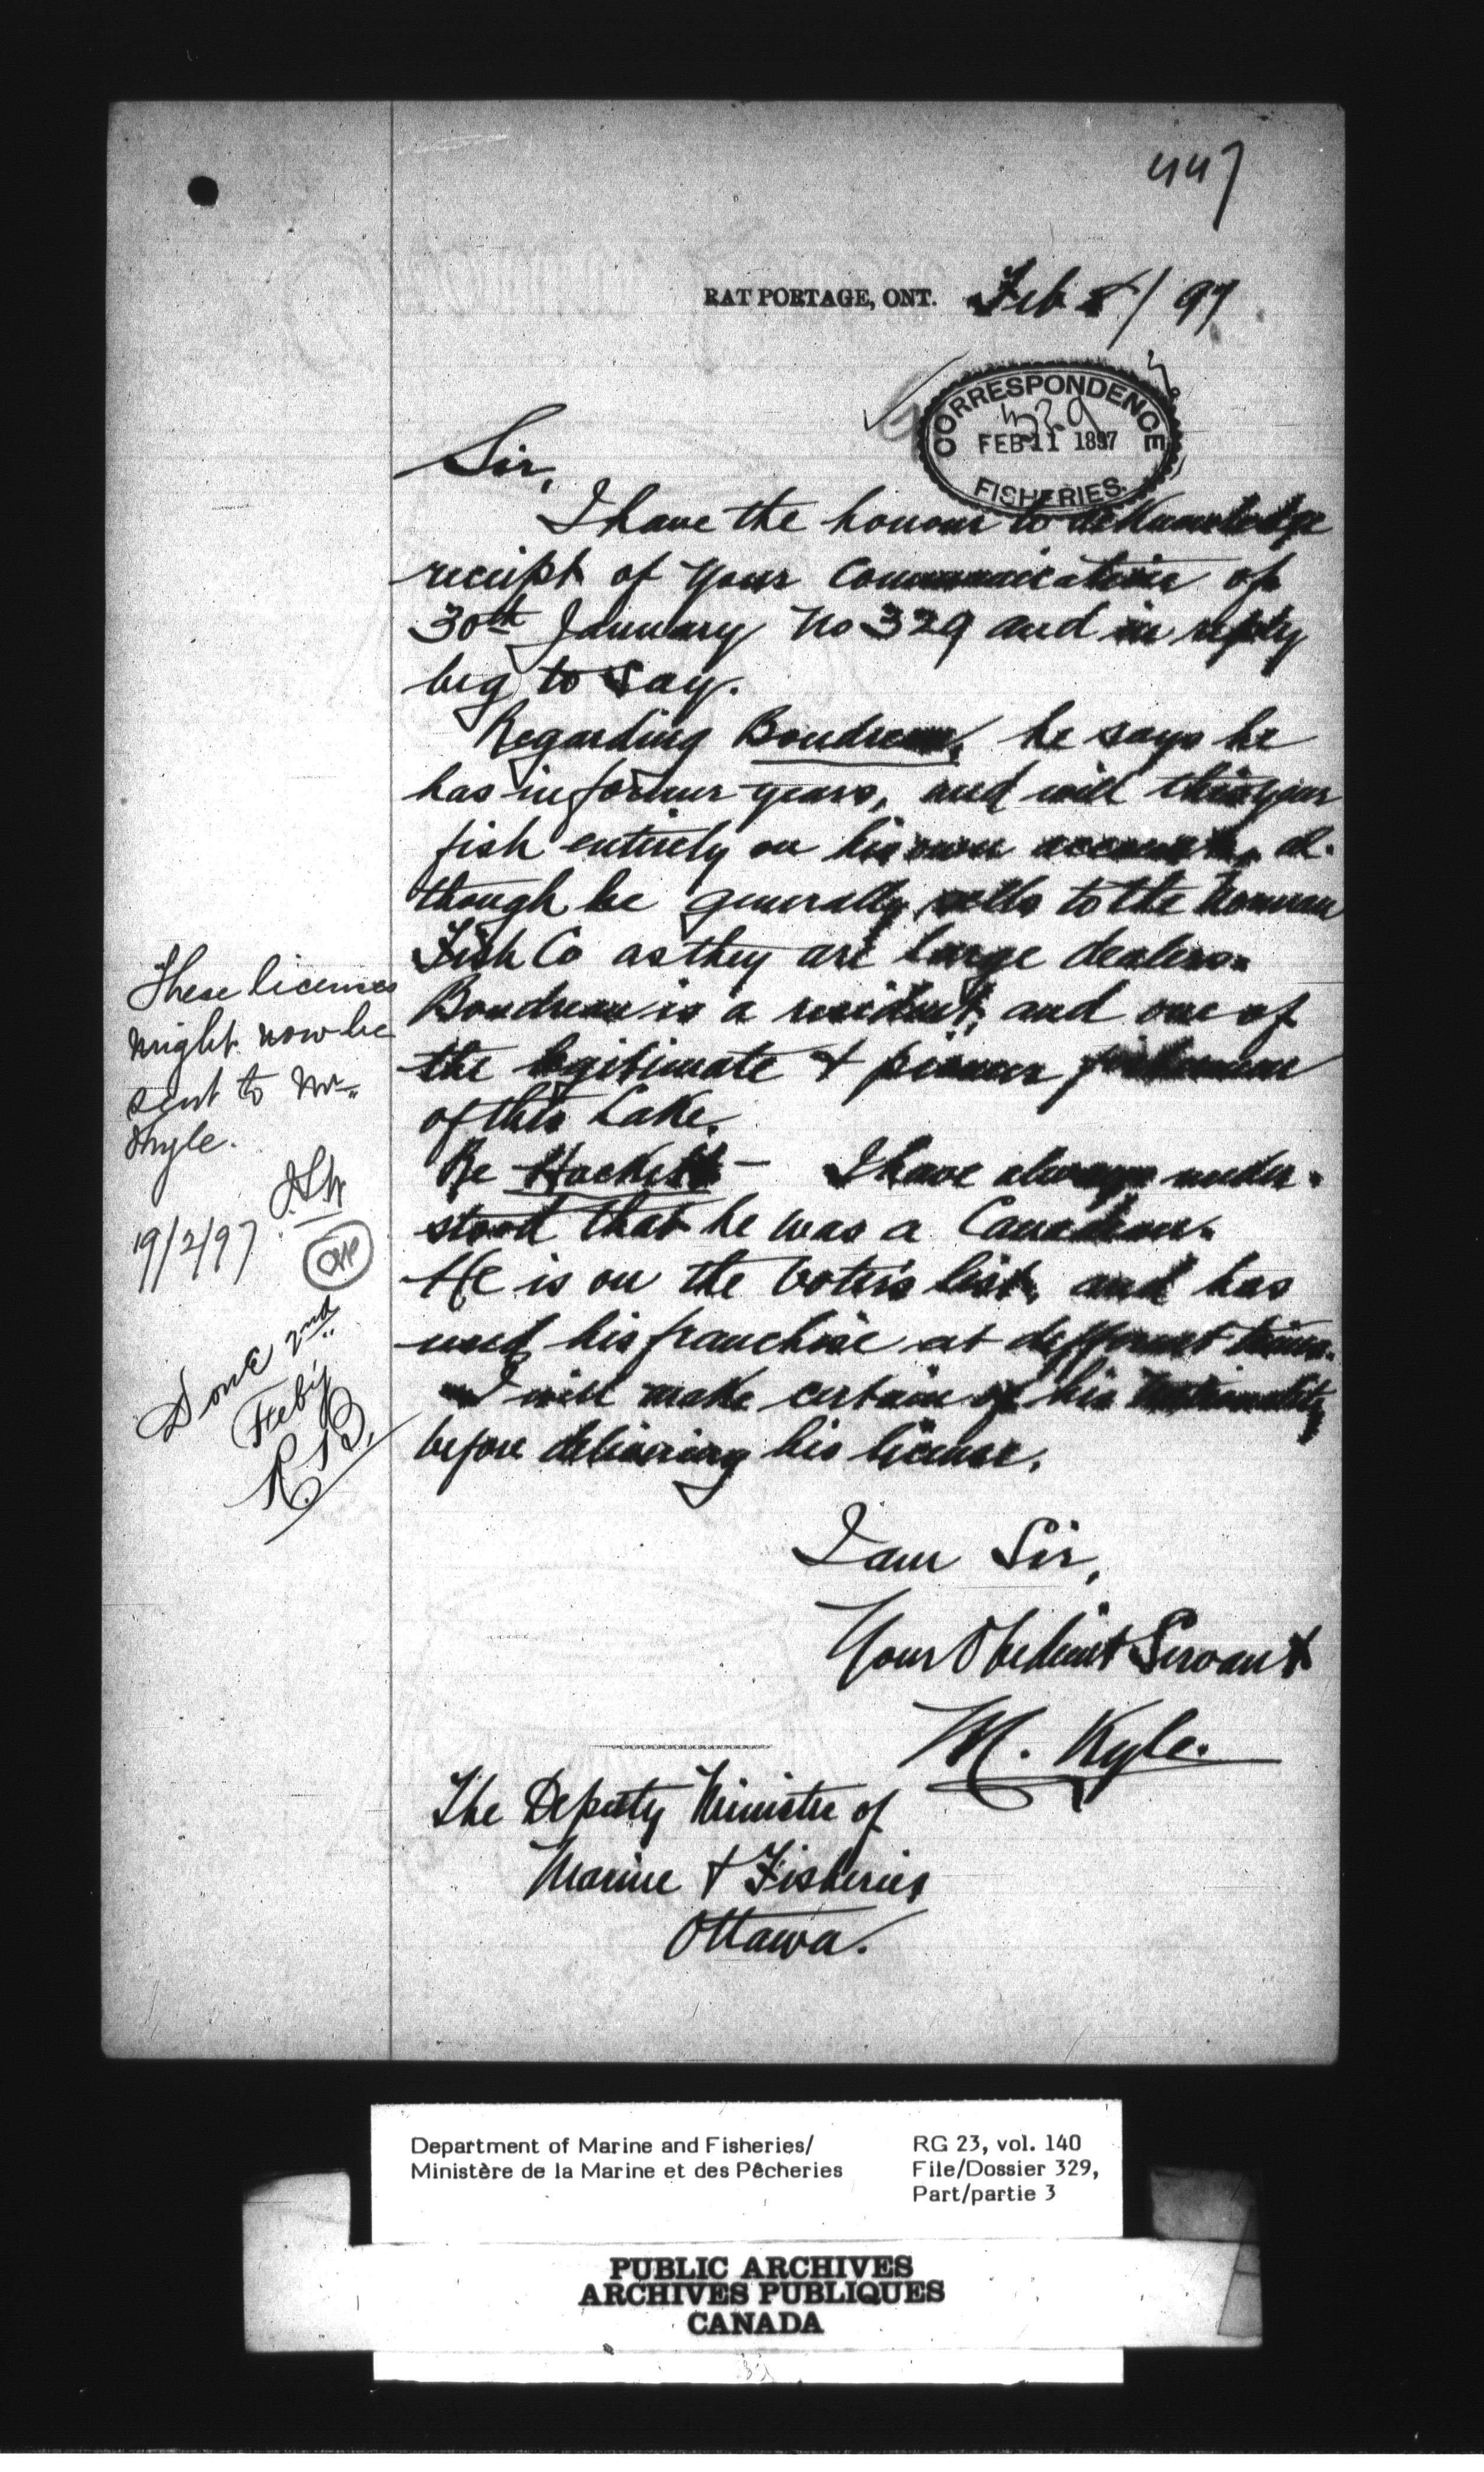 447
RAT PORTAGE, ONT. Feb 8/97
CORRESPONDENCE
329
FEB 11 1897
FISHERIES.
Sir,
I have the honour to acknowledge
receipt of your Communication of
30th January No 329 and in reply
beg to say.
Regarding Boudreau, he says he
has in former years, and will this year
fish entirely on his own account, al-
though he generally sells to the Norman
Fish Co as they are large dealers.
Boudreau is a resident, and one of
the legitimate & pioneer fishermen
of this Lake.
Re Hackett - I have always under-
stood that he was a Canadian.
He is on the Voters list, and has
used his franchise at different times.
I will make certain of his nationality
before delivering his license.
I am Sir,
Your Obedient Servant
M. Kyle.
The Deputy Minister of
Marine & Fisheries
Ottawa.
These licenses
might now be
sent to Mr.
Kyle.
19/2/97
Done 2nd
Feby
R.B.
Department of Marine and Fisheries/
Ministère de la Marine et des Pêcheries
RG 23, vol. 140
File/Dossier 329,
Part/partie 3
PUBLIC ARCHIVES
ARCHIVES PUBLIQUES
CANADA